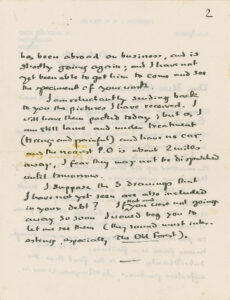 2
has been abroad on business, and is
shortly going again; and I have not
yet been able to get him to come and see
the specimens of your work.
I am reluctantly sending back
to you the pictures I have received. I
will have them packed today; but as, I
am still lame and under treatment
(tiring and painful) and have no car,
and the nearest P.O is about 2 miles
away, I fear they may not be dispatched
until tomorrow.
I suppose the 3 drawings that
I have not yet seen are also included
in your debt? If you were not going
away so soon I would beg you to
let me see them (they sound most inter-
esting, especially The Old Forest).